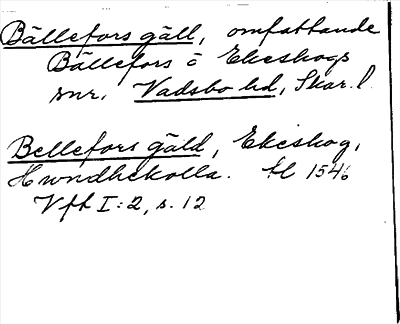 Bällefors gäll, omfattande
Bällefors o Ekeskogs
snr. Vadsbo hd, Skar. l.
Bellefors gäld, Ekeskog,
Hwndhekolla. tl 1546
Vft I:2, s. 12